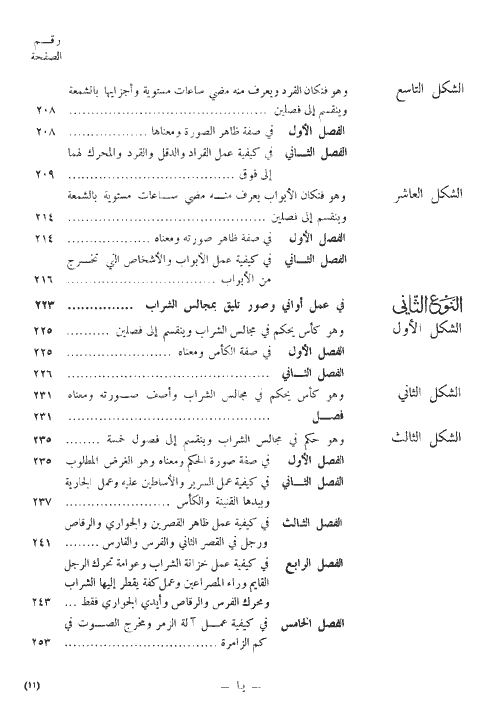 رقم
الصفحة
الشكل التاسع وهو فنكان القرد ويعرف منه مضي ساعات مستوية وأجزايها بالشمعة
وينقسم إلى فصلين ................ ٢٠٨
الفصل الأول في صفة ظاهر الصورة ومعناها ................ ٢٠٨
الفصل الثاني في كيفية عمل القراد والدقل والقرد والمحرك لهما
إلى فوق ................ ٢٠٩
الشكل العاشر وهو فنكان الأبواب يعرف منه مضي ساعات مستوية بالشمعة
وينقسم إلى فصلين ................ ٢١٤
الفصل الأول في صفة ظاهر صورته ومعناه ................ ٢١٤
الفصل الثاني في كيفية عمل الأبواب والأشخاص التي تخرج
من الأبواب ................ ٢١٦
النوع الثاني في عمل أواني وصور تليق بمجالس الشراب ............... ٢٢٣
الشكل الأول وهو كأس يحكم في مجالس الشراب وينقسم إلى فصلين .......... ٢٢٥
الفصل الأول في صفة الكأس ومعناه ................ ٢٢٥
الفصل الثاني ................ ٢٢٦
الشكل الثاني وهو كأس يحكم في مجالس الشراب وأصف صورته ومعناه ٢٣١
فصل ................ ٢٣١
الشكل الثالث وهو حكم في مجالس الشراب وينقسم إلى فصول خمسة ........ ٢٣٥
الفصل الأول في صفة صورة الحكم ومعناه وهو الغرض المطلوب ٢٣٥
الفصل الثاني في كيفية عمل السرير والأساطين عليه وعمل الجارية
وبيدها القنينة والكأس ................ ٢٣٧
الفصل الثالث في كيفية عمل ظاهر القصرين والجواري والرقاص
ورجل في القصر الثاني والفرس والفارس ........ ٢٤١
الفصل الرابع في كيفية عمل خزانة الشراب وعوامة تحرك الرجل
القايم وراء المصراعين وعمل كفة يقطر إليها الشراب
ومحرك الفرس والرقاص وأيدي الجواري فقط ... ٢٤٣
الفصل الخامس في كيفية عمل آلة الزمر ومخرج الصوت في
كم الزامرة ................ ٢٥٣
– يا –
(١١)